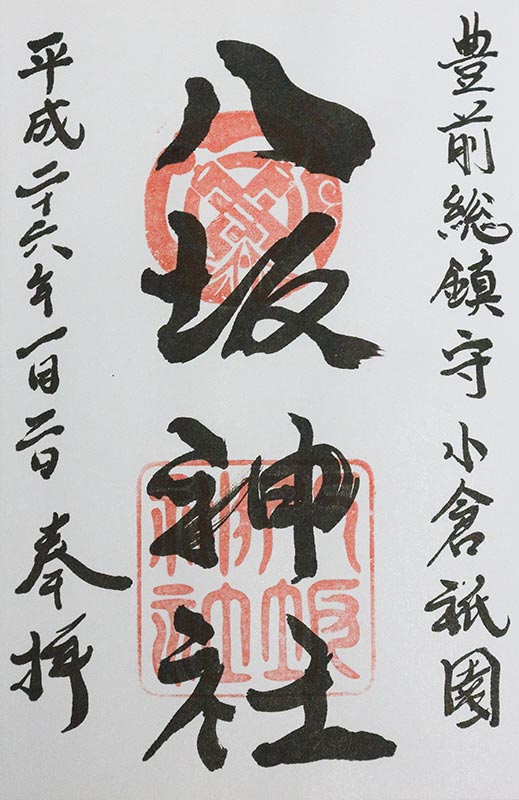 豊前総鎮守 小倉祇園
八坂神社
平成二十六年一月二日 奉拝
八坂
神社